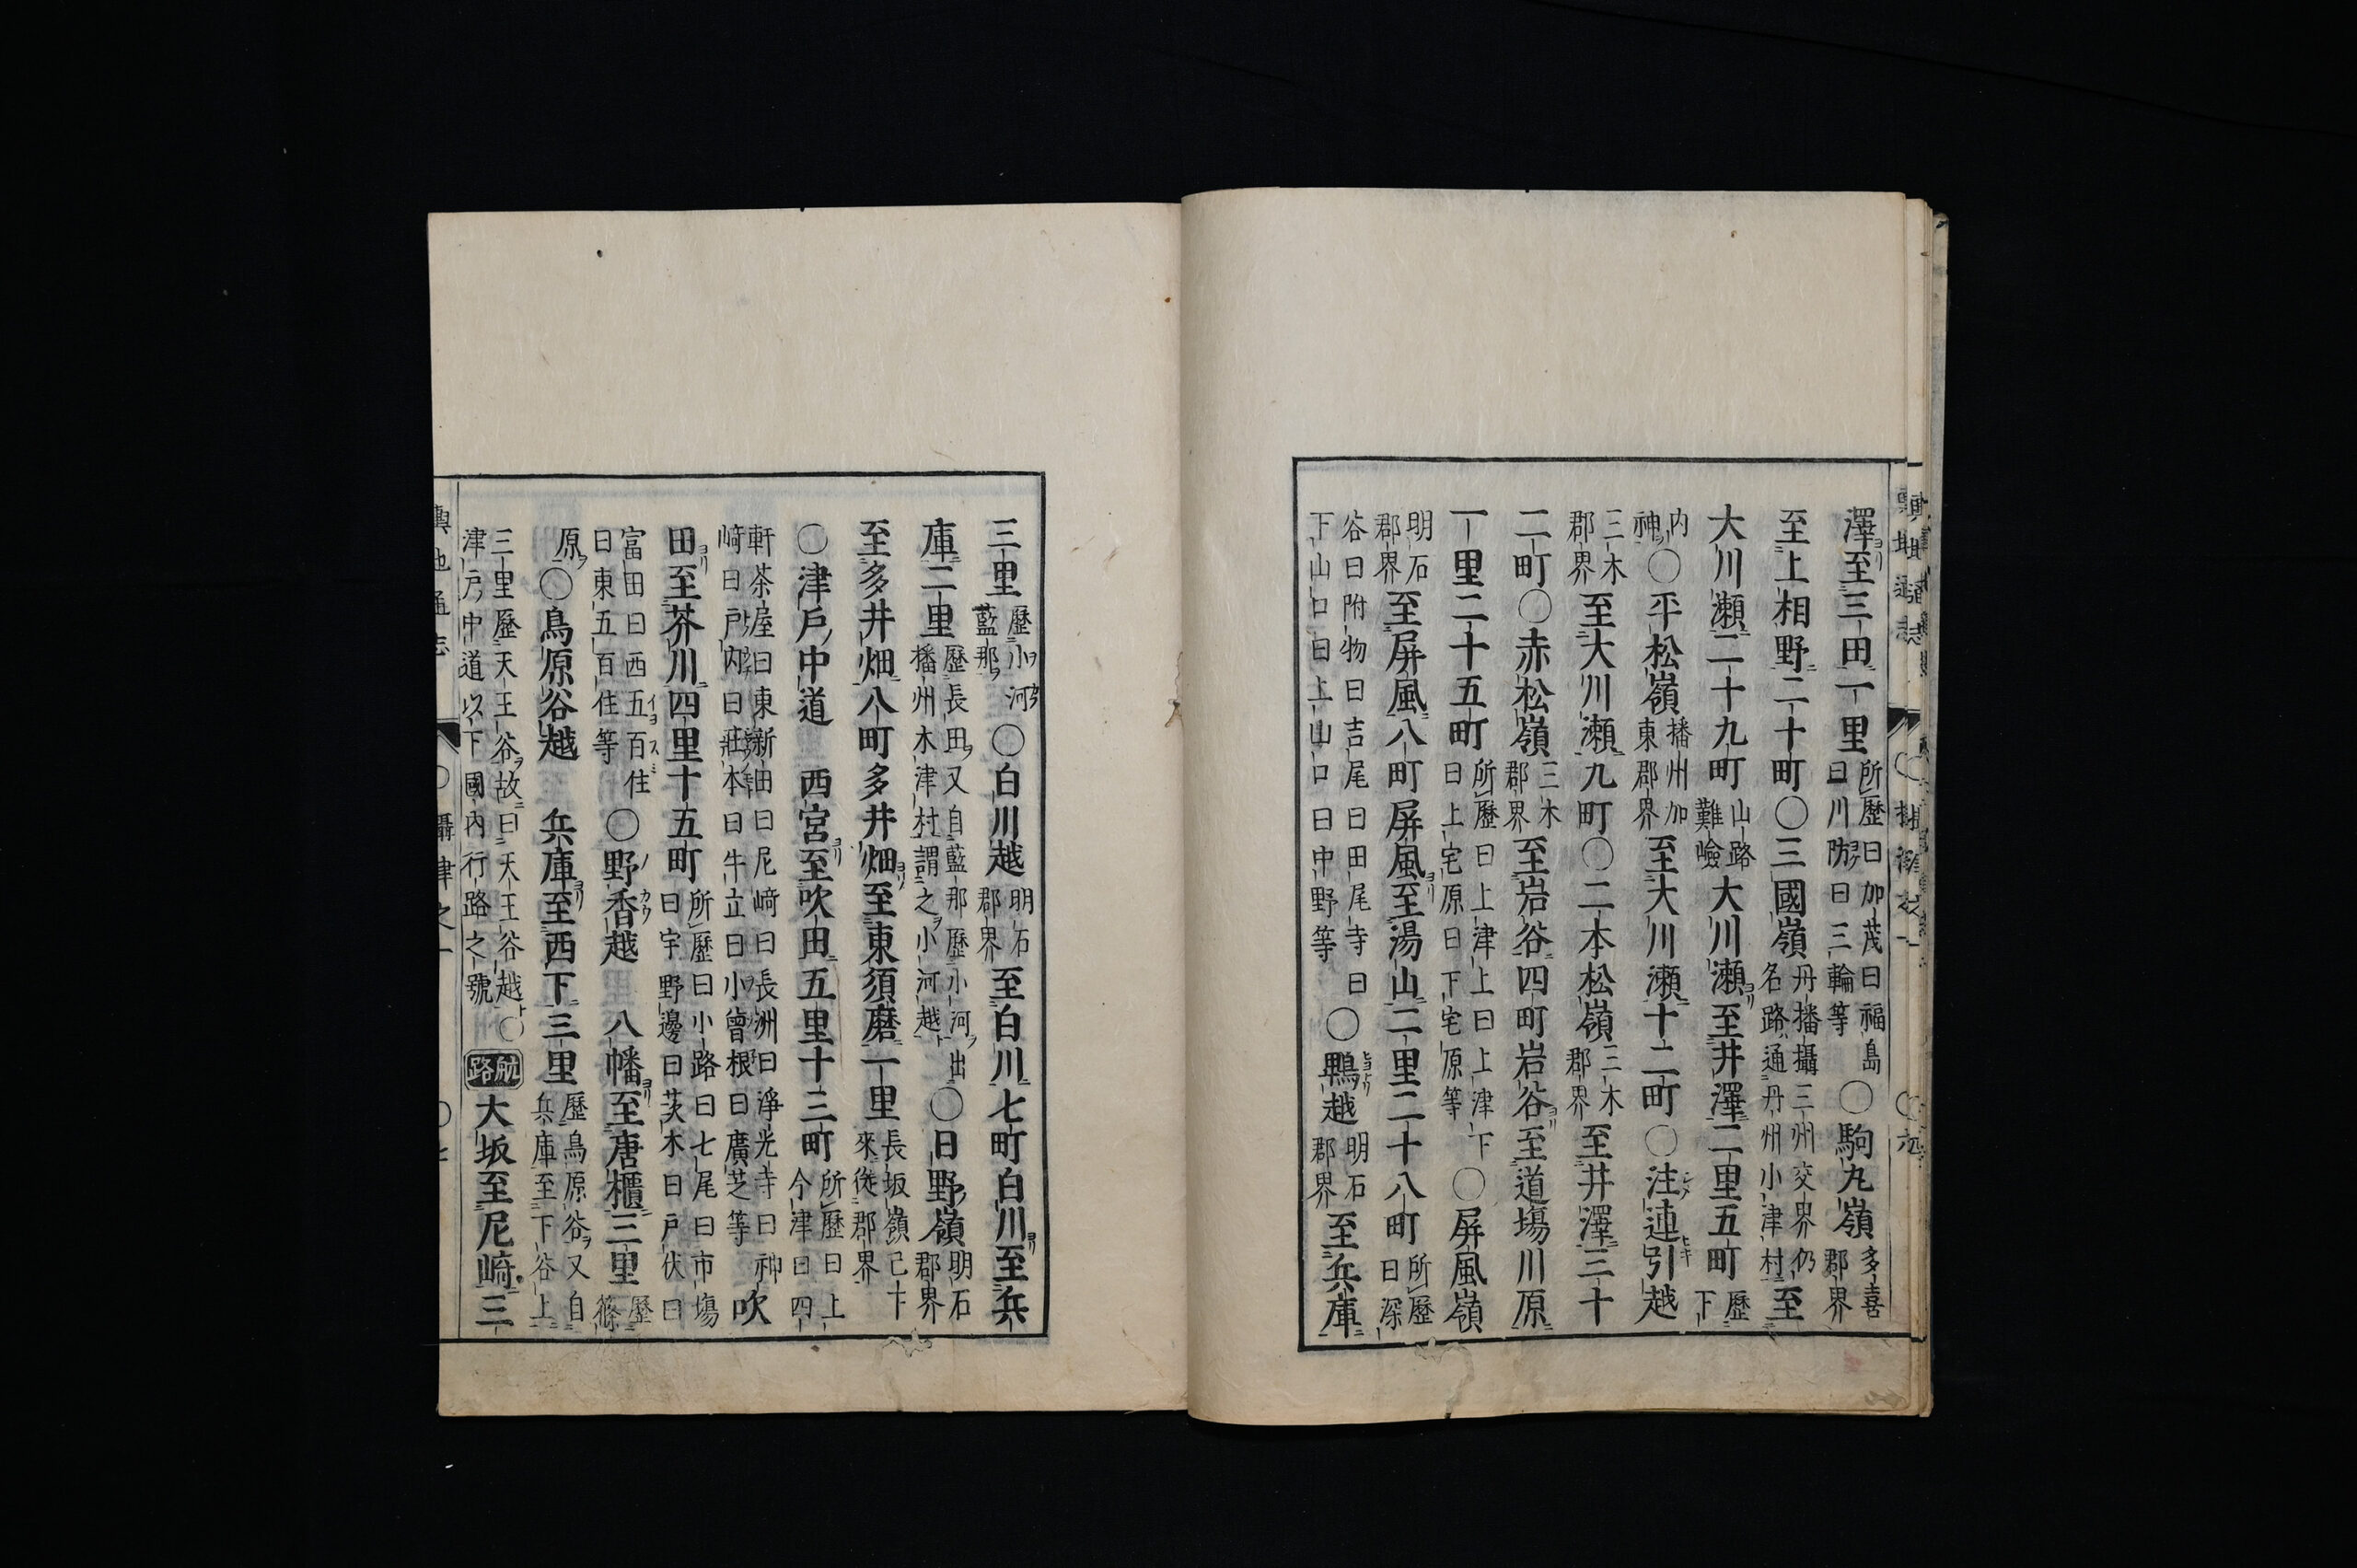 澤至三田一里所歷曰加茂曰福島曰川防曰三輪等〇駒丸嶺多喜郡界
至上相野二十町〇三國嶺丹播攝三州交界仍名路通丹州小津村至
大川瀬二十九町山路難嶮大川瀬至井澤二里五町歷下
内神〇平松嶺播州加東郡界至大川瀬十二町〇注連引越
三木郡界至大川瀬九町〇二本松嶺三木郡界至井澤三十
二町〇赤松嶺三木郡界至岩谷四町岩谷至道場川原
一里二十五町所歷曰上津上曰上津下曰上宅原曰下宅原等〇屏風嶺
明石郡界至屏風八町屏風至湯山二里二十八町所歷曰深
谷曰附物曰吉尾曰田尾寺曰下山口曰上山口曰中野等〇鵯越明石郡界至兵庫
三里歷小河藍那〇白川越明石郡界至白川七町白川至兵
庫二里歷長田又自藍那歷小河出播州木津村謂之小河越〇日野嶺明石郡界
至多井畑八町多井畑至東須磨一里長坂嶺已下來從郡界
〇津戸中道 西宮至吹田五里十三町所歷曰上今津曰四
軒茶屋曰東新田曰尼﨑曰長洲曰淨光寺曰神﨑曰戸内曰莊本曰牛立曰小曾根曰廣芝等吹
田至芥川四里十五町所歷曰小路曰七尾曰市塲曰宇野邊曰茨木曰戸伏曰
富田曰西五百住曰東五百住等〇野香越 八幡至唐櫃三里歷篠
原〇鳥原谷越 兵庫至西下三里歷鳥原谷又自兵庫至下谷上
三里歷天王谷故曰天王谷越〇津戸中道以下國内行路之號航路大坂至尼﨑三